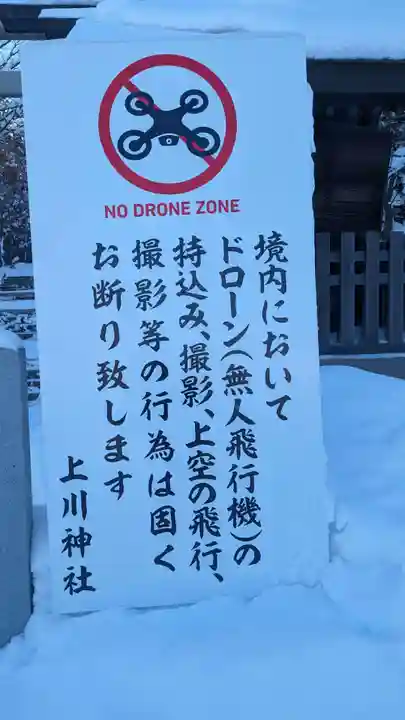 NO DRONE ZONE
境内において
ドローン(無人飛行機)の
持込み、撮影、上空の飛行、
撮影等の行為は固く
お断り致します
上川神社